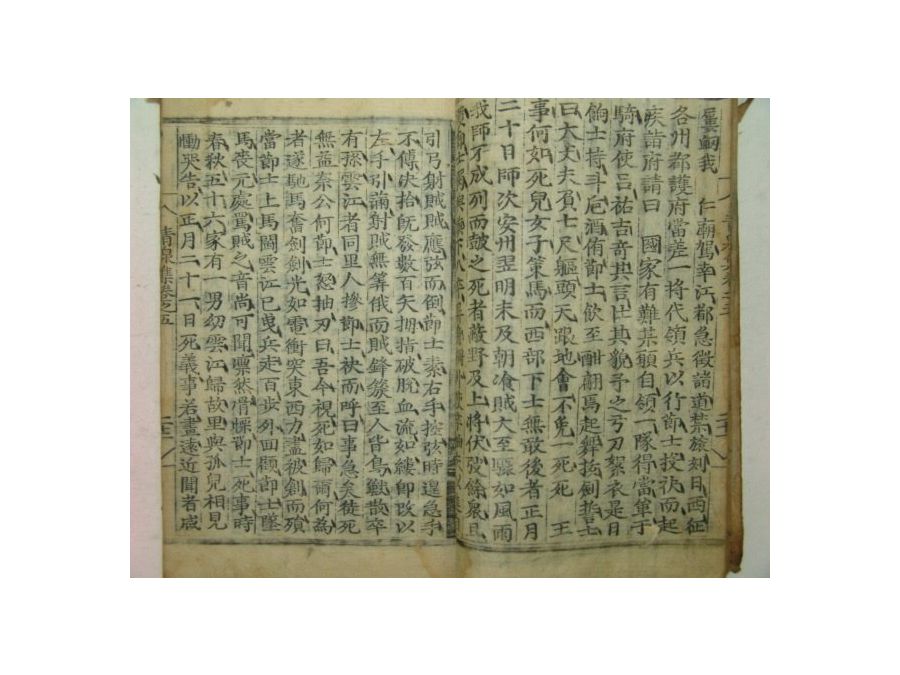 我 仁廟駕幸江都急徵諸道禁旅刻日西征
各州都護府當差一將代領兵以行節士投袂而起
疾詣府請曰 國家有難某願自領一隊得當軍于
騎府使呂祐吉奇其言壯其貌予之弓刀絮衣是日
餉士持斗巵酒侑節士飮至酣翩焉起舞拔劍誓士
曰大丈夫負七尺軀頭天踞地會不免一死死 王
事何如死兒女子策馬而西部下士無敢後者正月
二十日師次安州翌明未及朝飡賊大至驟如風雨
我師不成列而鼓之死者蔽野及上將伏
引弓射賊賊應弦而倒節士素右手控弦時遑急手
不傅決拾旣發數百矢拇指破脫血流如縷卽改以
左手引滿射賊無筭俄而賊鋒簇至人皆鳥獸散卒
有孫雲江者同里人摻節士袂而呼曰事急矣徒死
無益奈公何節士怒抽刃曰吾今視死如歸爾何爲
者遂馳馬奮劍劍光如電衝突東西力盡被創而殞
當節士上馬鬪雲江已曳兵走百步外回顧節士墜
馬喪元處罵賊之音尙可聞凜然滑 節士死事時
春秋五十六家有一男幼雲江歸故里與孤兒相見
慟哭告以正月二十一日死義事若畫遠近聞者咸
集卷之五